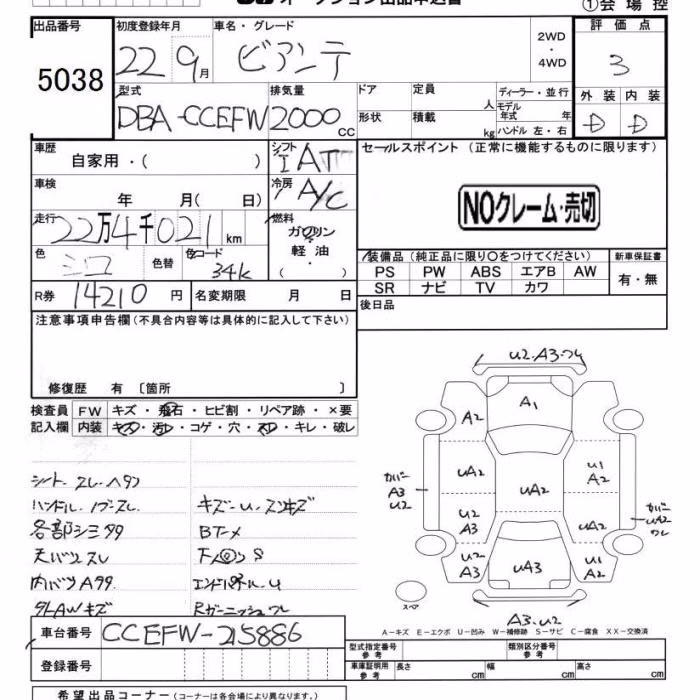 オークション出品申込書
①会場控
出品番号 5038
初度登録年月 22年9月
車名・グレード ビアンテ
2WD・4WD
評価点 3
型式 DBA-CCEFW
排気量 2000 cc
ドア
定員 人
ディーラー・並行
形状
積載 kg
モデル年式 年
ハンドル 左・右
外装 D
内装 D
車歴 自家用・( )
シフト IAT
セールスポイント (正常に機能するものに限ります)
車検 年 月( 日)
冷房 A/C
NOクレーム・売切
走行 22万4千021km
燃料 ガソリン・軽油・( )
色 シロ
色替
色コード 34k
装備品 (純正品に限り〇をつけてください)
新車保証書
PS PW ABS エアB AW
有・無
SR ナビ TV カワ
R券 14210円
名変期限 月 日
後日品
注意事項申告欄 (不具合内容等は具体的に記入して下さい)
修復歴 有 〔箇所 〕
検査員記入欄
FW キズ・飛石・ヒビ割・リペア跡・×要
内装 キズ・汚レ・コゲ・穴・スレ・キレ・破レ
U2.A3.フレ
A1
A2
UA2
UA2
U1 A2
カバー A3 U2
U2 A3
UA2
カバー UA2 ワレ
U2 A3
UA3
U1 A2
スペア
A3.U2
シート スレ.ヘタリ
ハンドル.ノブ-スレ
キズ-U.スリキズ
各部シミ タタ
BT-メ
天バリ スレ
内バリ A タタ
エンドパネル-U
タ1.AWキズ
Rガーニッシュ ワレ
A-キズ E-エクボ U-凹み W-補修跡 S-サビ C-腐食 XX-交換済
車台番号 CCEFW-215886
登録番号
型式指定番号 参考
類別区分番号 参考
車庫証明用 参考 長さ cm 幅 cm 高さ cm
希望出品コーナー (コーナーは各会場により異なります。)